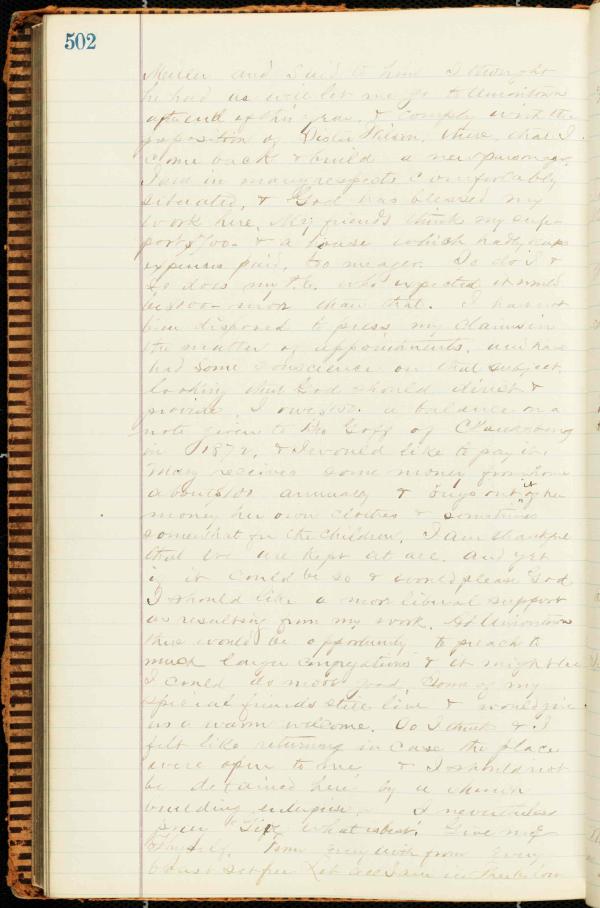 502
and said to him I thought
he had as well let me go to Uniontown
at end of this year & comply with the
of Sister Wilson, there, that I
come back & build a new parsonage.
I am in many respects comfortably
situated, & God has blessed my
work here. My friends think my sup-
port $700. & a house which hardly
expenses paid, too meager. So do I &
so does my P.E. who expected it would
be $100 more than that. I have not
been disposed to press my claims in
the matter of appointments, and have
had some conscience on that subject,
looking that God should direct &
provide. I owe a balance on a
note given to Goff of Clarksburg
in 1872, & I would like to pay it.
Mary receives some money from home
about annually & buys out of her
money her own clothes & sometimes
somewhat for the children. I am thankful
that we are kept at all. And yet
if it could be so & would please God
I should like a more liberal support
as resulting from my work. At Uniontown
there would be opportunity to preach to
much larger congregations & it might be
I could do more good. Some of my
special friends still live & would give
us a warm welcome. So I think & I
felt like returning in case the place
were open to me & I should not
be detained here by a church
building enterprise. I nevertheless
pray "Give what is best." Give me
Thyself. From every from every
set free Let all I am in Thee be lost